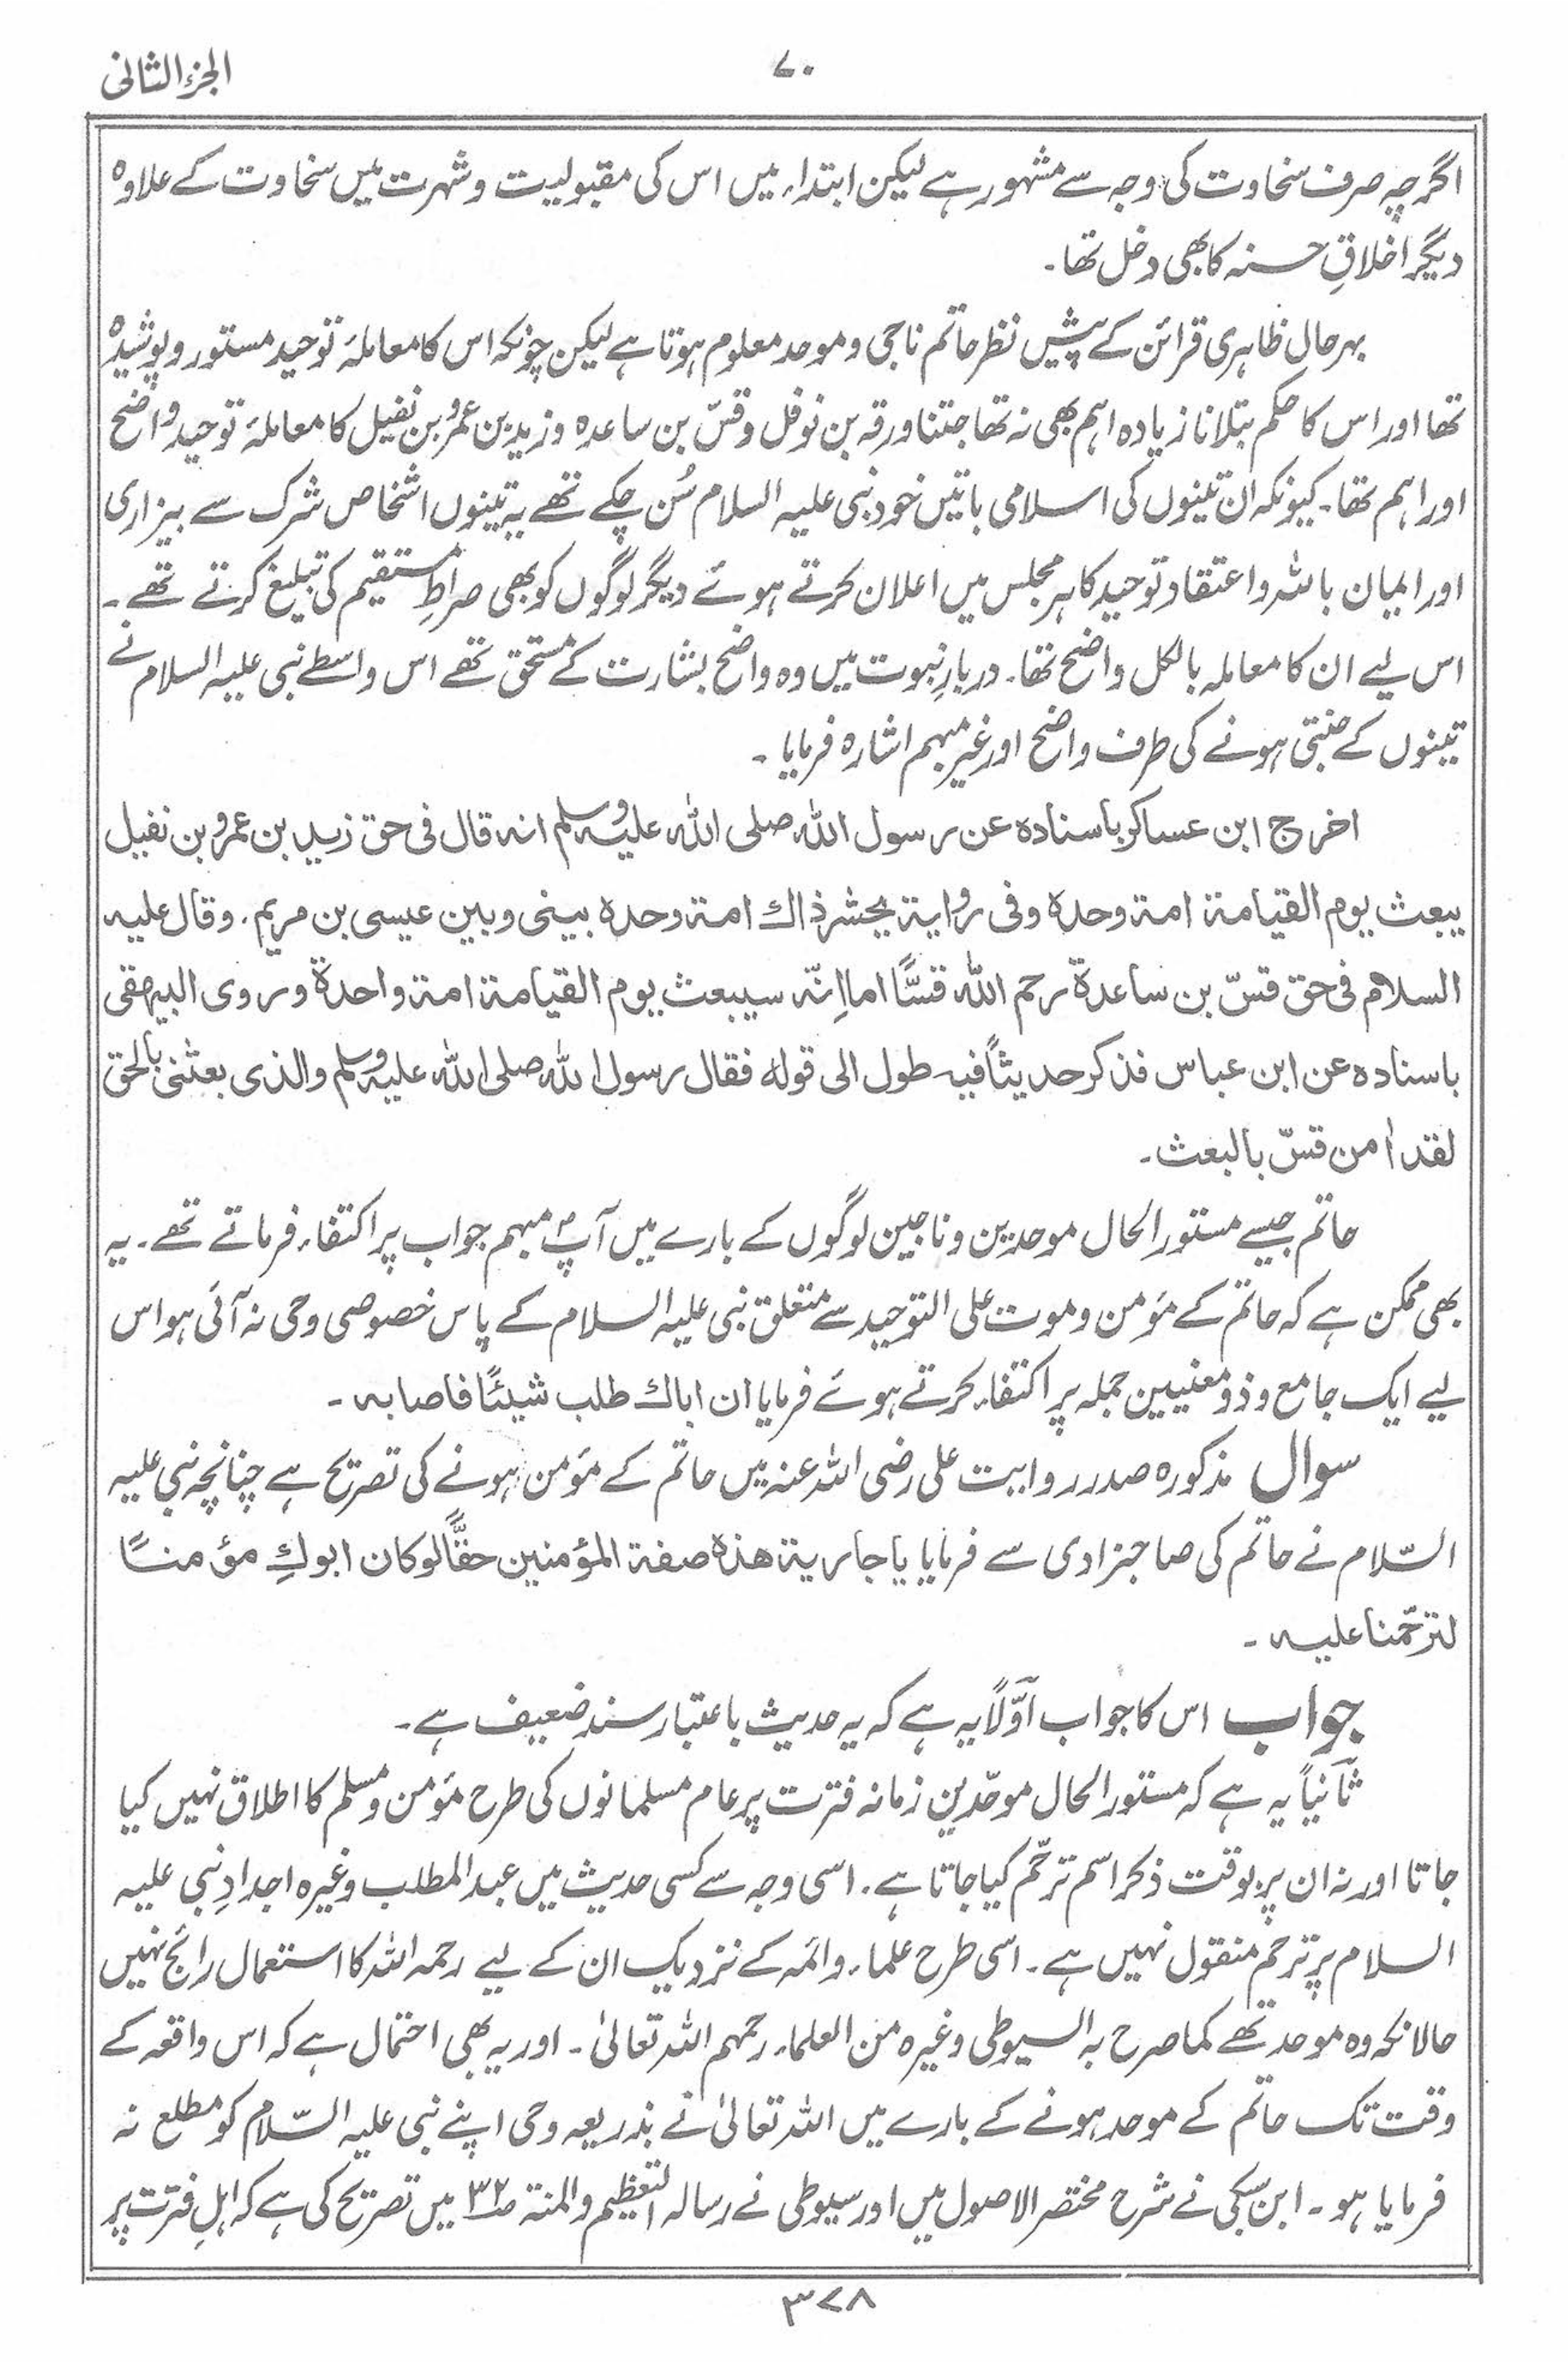 الجزء الثانی
۷۰
اگرچہ صرف سخاوت کی وجہ سے مشہور ہے لیکن ابتداء میں اس کی مقبولیت و شہرت میں سخاوت کے علاوہ
دیگر اخلاقِ حسنہ کا بھی دخل تھا۔
بہرحال ظاہری قرائن کے پیش نظر حاتم ناجی و موحد معلوم ہوتا ہے لیکن چونکہ اس کا معاملۂ توحید مستور و پوشیدہ
تھا اور اس کا حکم بتلانا زیادہ اہم بھی نہ تھا جتنا ورقہ بن نوفل و قسّ بن ساعدہ و زید بن عمرو بن نفیل کا معاملۂ توحید واضح
اور اہم تھا۔ کیونکہ ان تینوں کی اسلامی باتیں خود نبی علیہ السلام سُن چکے تھے یہ تینوں اشخاص شرک سے بیزاری
اور ایمان باللہ و اعتقاد توحید کا ہر مجلس میں اعلان کرتے ہوئے دیگر لوگوں کو بھی صراطِ مستقیم کی تبلیغ کرتے تھے۔
اس لیے ان کا معاملہ بالکل واضح تھا۔ دربارِ نبوت میں وہ واضح بشارت کے مستحق تھے اس واسطے نبی علیہ السلام نے
تینوں کے جنتی ہونے کی طرف واضح اور غیر مبہم اشارہ فرمایا۔
اخرج ابن عساکر باسنادہ عن رسول اللہ صلی اللہ علیہ وسلم انہ قال فی حق زید بن عمرو بن نفیل
یبعث یوم القیامة امة وحدہ وفی روایة یحشر ذاك امة وحدہ بینی وبین عیسی بن مریم۔ وقال علیہ
السلام فی حق قسّ بن ساعدة رحم اللہ قسًّا اما اِنّہ سیبعث یوم القیامة امة واحدة وروی البیهقی
باسنادہ عن ابن عباس فذکر حدیثاً فیہ طول الی قولہ فقال رسول اللہ صلی اللہ علیہ وسلم والذی بعثنی بالحق
لقد اٰمن قسّ بالبعث۔
حاتم جیسے مستور الحال موحدین و ناجین لوگوں کے بارے میں آپؐ مبہم جواب پر اکتفاء فرماتے تھے۔ یہ
بھی ممکن ہے کہ حاتم کے مؤمن و موت علی التوحید سے متعلق نبی علیہ السلام کے پاس خصوصی وحی نہ آئی ہو اس
لیے ایک جامع و ذو معنیین جملہ پر اکتفاء کرتے ہوئے فرمایا ان اباك طلب شیئًا فاصابہ۔
سوال مذکورہ صدر روایت علی رضی اللہ عنہ میں حاتم کے مؤمن ہونے کی تصریح ہے چنانچہ نبی علیہ
السّلام نے حاتم کی صاحبزادی سے فرمایا یا جاریة هذہ صفة المؤمنین حقًّا لو کان ابوكِ مؤمنًا
لترحّمنا علیہ۔
جواب اس کا جواب اوّلاً یہ ہے کہ یہ حدیث باعتبار سند ضعیف ہے۔
ثانیاً یہ ہے کہ مستور الحال موحّدین زمانہ فترت پر عام مسلمانوں کی طرح مؤمن و مسلم کا اطلاق نہیں کیا
جاتا اور نہ ان پر بوقت ذکر اسم ترحّم کیا جاتا ہے۔ اسی وجہ سے کسی حدیث میں عبد المطلب وغیرہ اجدادِ نبی علیہ
السلام پر ترحم منقول نہیں ہے۔ اسی طرح علماء و ائمہ کے نزدیک ان کے لیے رحمہ اللہ کا استعمال رائج نہیں
حالانکہ وہ موحد تھے کما صرح بہ السیوطی وغیرہ من العلماء رحمہم اللہ تعالیٰ۔ اور یہ بھی احتمال ہے کہ اس واقعہ کے
وقت تک حاتم کے موحد ہونے کے بارے میں اللہ تعالیٰ نے بذریعہ وحی اپنے نبی علیہ السّلام کو مطلع نہ
فرمایا ہو۔ ابن سبکی نے شرح مختصر الاصول میں اور سیوطی نے رسالہ التعظیم والمنۃ ص۳۲ میں تصریح کی ہے کہ اہلِ فترت پر
۳۷۸